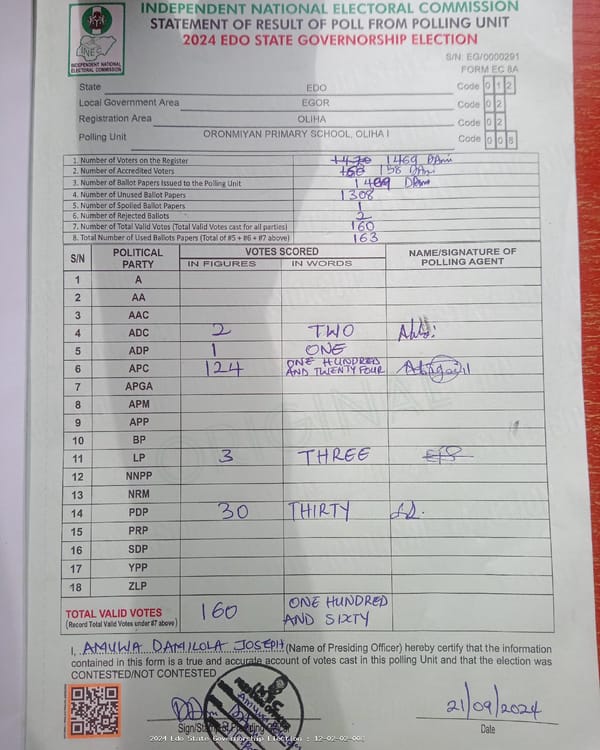 INDEPENDENT NATIONAL ELECTORAL COMMISSION
STATEMENT OF RESULT OF POLL FROM POLLING UNIT
2024 EDO STATE GOVERNORSHIP ELECTION
INEC
INDEPENDENT NATIONAL
ELECTORAL COMMISSION
S/N: EG/0000291
FORM EC 8A
State EDO Code 0 1 2
Local Government Area EGOR Code 0 2
Registration Area OLIHA Code 0 2
Polling Unit ORONMIYAN PRIMARY SCHOOL, OLIHA I Code 0 0 8
1. Number of Voters on the Register 1470 1469 DAm
2. Number of Accredited Voters 158 DAm
3. Number of Ballot Papers Issued to the Polling Unit DAm
4. Number of Unused Ballot Papers 1308
5. Number of Spoiled Ballot Papers 1
6. Number of Rejected Ballots 2
7. Number of Total Valid Votes (Total Valid Votes cast for all parties) 160
8. Total Number of Used Ballots Papers (Total of #5 + #6 + #7 above) 163
S/N POLITICAL PARTY VOTES SCORED NAME/SIGNATURE OF POLLING AGENT
IN FIGURES IN WORDS
1 A
2 AA
3 AAC
4 ADC 2 TWO
5 ADP 1 ONE
6 APC 124 ONE HUNDRED AND TWENTY FOUR
7 APGA
8 APM
9 APP
10 BP
11 LP 3 THREE
12 NNPP
13 NRM
14 PDP 30 THIRTY
15 PRP
16 SDP
17 YPP
18 ZLP
ORIGINAL
TOTAL VALID VOTES 160 ONE HUNDRED AND SIXTY
(Record Total Valid Votes under #7 above)
I, AMUWA DAMILOLA JOSEPH (Name of Presiding Officer) hereby certify that the information
contained in this form is a true and accurate account of votes cast in this polling Unit and that the election was
CONTESTED/NOT CONTESTED
21/09/2024
Date
2024 Edo State Governorship Election : 12-02-02-008